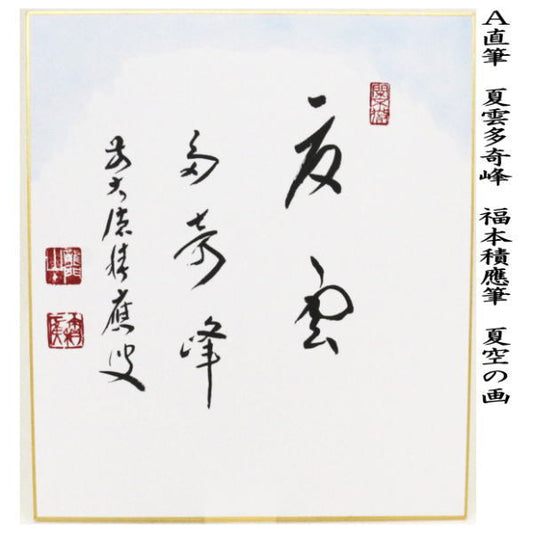 A直筆 夏雲多奇峰 福本積應筆 夏空の画
夏雲
多奇峰
積應叟